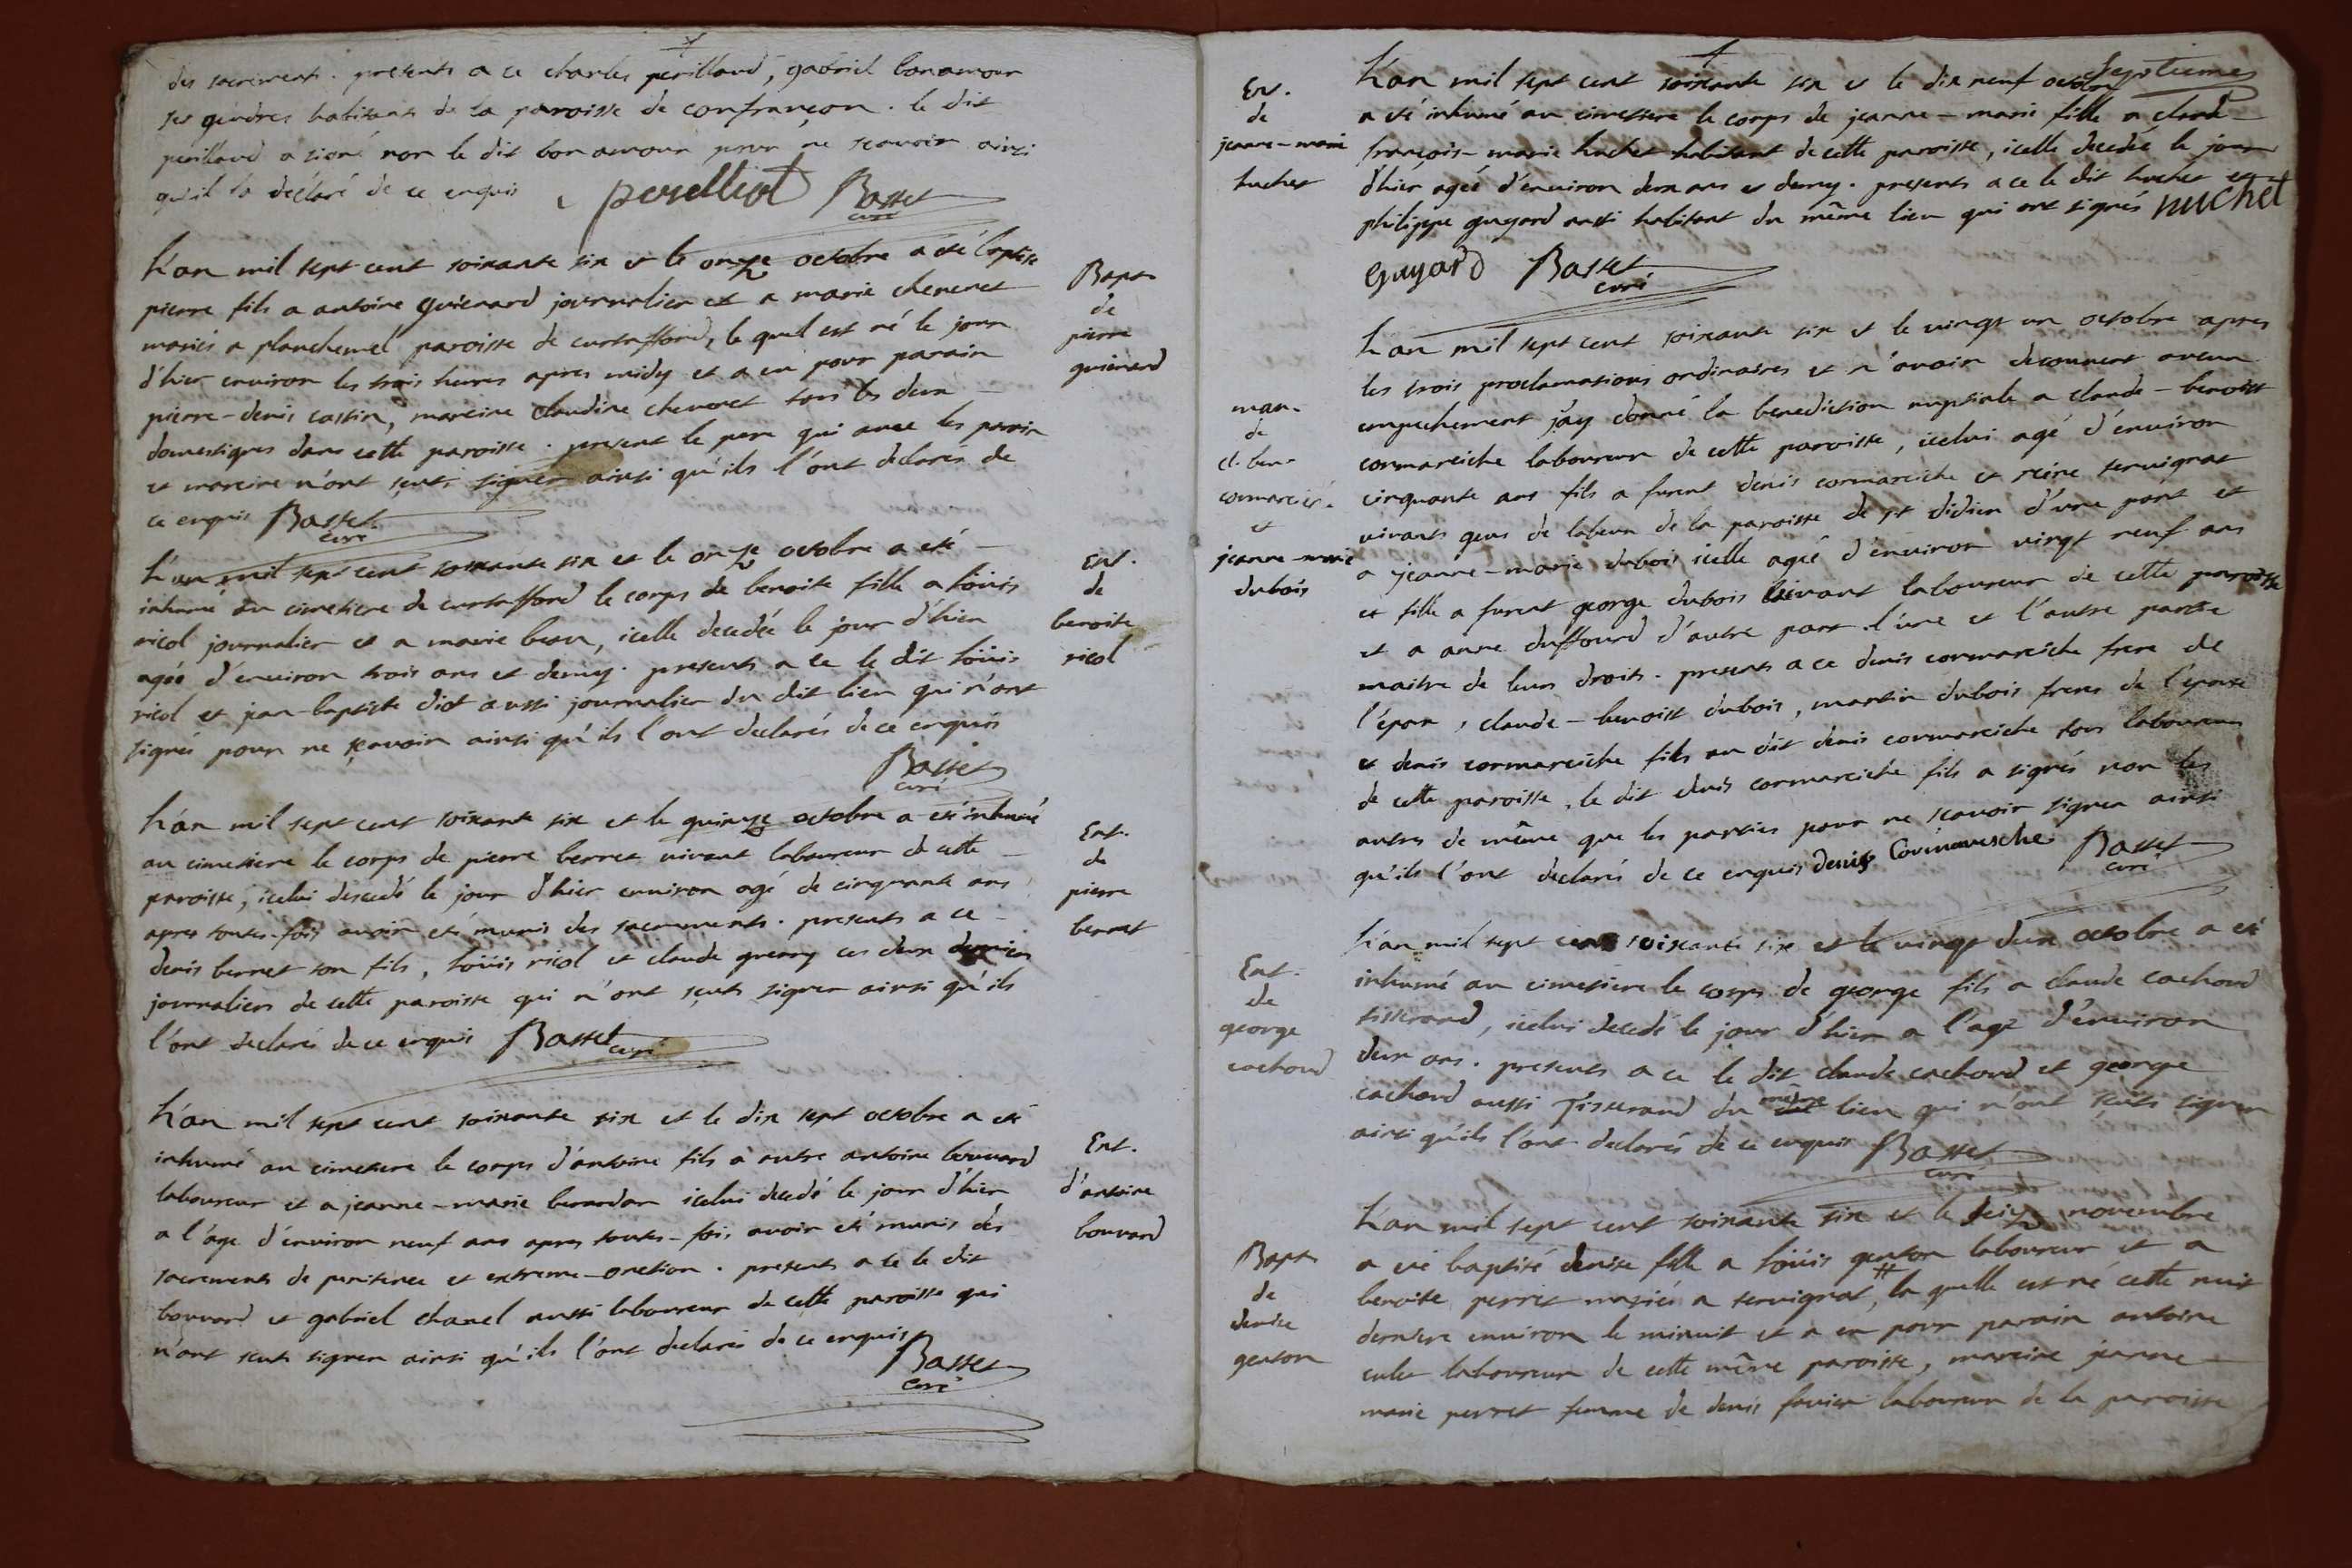 des sacrements. presents a ce charles perilland, gabriel bonamour
ses gendres habitants de la paroisse de confrançon. le dit
perilland a signé non le dit bonamour pour ne scavoir ainsi
qu'il la déclaré de ce enquis perelliat Basset
curé
L'an mil sept cent soixante six et le onze octobre a eté baptisé
pierre fils a antoine guienard journalier et a marie chevenet
mariés a planchemel paroisse de curtaffond, le quel est né le jour
d'hier environ les trois heures apres midy et a eu pour parain
pierre-denis cassin, mareine claudine chevenet tous les deux
domestiques dans cette paroisse. present le pere qui avec les parain
et mareine n'ont sçuts signer ainsi qu'ils l'ont declarés de
ce enquis Basset
curé
Bapt
de
pierre
guienard
L'an mil sept cent soixante six et le onze octobre a eté
inhumé au cimetiere de curtaffond le corps de benoite fille a loüis
nicol journalier et a marie beau, icelle decedée le jour d'hier
agée d'environ trois ans et demy. presents a ce le dit loüis
nicol et jean-baptiste diot aussi journalier du dit lieu qui n'ont
signés pour ne sçavoir ainsi qu'ils l'ont declarés de ce enquis
Basset
curé
Ent.
de
benoite
nicol
L'an mil sept cent soixante six et le quinze octobre a eté inhumé
au cimetiere le corps de pierre berret vivant laboureur de cette
paroisse, icelui decedé le jour d'hier environ agé de cinquante ans
apres toutes-fois avoir eté munis des sacrements. presents a ce
denis berret son fils, loüis nicol et claude greany ces deux derniers
journaliers de cette paroisse qui n'ont sçuts signer ainsi qu'ils
l'ont declarés de ce enquis Basset
curé
Ent.
de
pierre
berret
L'an mil sept cent soixante six et le dix sept octobre a eté
inhumé au cimetiere le corps d'antoine fils a autre antoine bouvard
laboureur et a jeanne-marie berardan icelui decedé le jour d'hier
a l'age d'environ neuf ans apres toutes-fois avoir eté munis des
sacrements de penitence et extreme-onction. presents a ce le dit
bouvard et gabriel chanel aussi laboureur de cette paroisse qui
n'ont sçuts signer ainsi qu'ils l'ont declarés de ce enquis
Basset
curé
Ent.
d'antoine
bouvard
Septiemes
L'an mil sept cent soixante six et le dix neuf octobre
a eté inhumé au cimetiere le corps de jeanne-marie fille a claude
françois-marie huchet habitant de cette paroisse, icelle decedée le jour
d'hier agée d'environ deux ans et demy. presents a ce le dit huchet et
philippe guyard aussi habitant du même lieu qui ont signés huchet
Guyard Basset
curé
Ent.
de
jeanne-marie
huchet
L'an mil sept cent soixante six et le vingt un octobre apres
les trois proclamations ordinaires et n'avoir decouvert aucun
empechement j'ay donné la benediction nuptiale a claude-benoist
cormareiche laboureur de cette paroisse, icelui agé d'environ
cinquante ans fils a furent denis cormareiche et reine servignat
vivants gens de labeur de la paroisse de st didier d'une part et
a jeanne-marie dubois icelle agée d'environ vingt neuf ans
et fille a furent george dubois vivant laboureur de cette paroisse
et a anne duffourd d'autre part. l'une et l'autre partie
maitre de leurs droits. presents a ce denis cormareiche frere de
l'epoux, claude-benoist dubois, martin dubois freres de l'epouse
et denis cormareiche fils au dit denis cormareiche tous laboureurs
de cette paroisse, le dit denis cormareiche fils a signés non les
autres de même que les parties pour ne scavoir signer ainsi
qu'ils l'ont declarés de ce enquis denis Cormaresche Basset
curé
mar.
de
cl. ben.
cormareiche
et
jeanne-marie
dubois
L'an mil sept cent soixante six et le vingt deux octobre a eté
inhumé au cimetiere le corps de george fils a claude cachoud
tisserand, icelui decedé le jour d'hier a l'age d'environ
deux ans. presents a ce le dit claude cachoud et george
cachoud aussi Tisserand du même lieu qui n'ont sçuts signer
ainsi qu'ils l'ont declarés de ce enquis Basset
curé
Ent.
de
george
cachoud
L'an mil sept cent soixante six et le seize novembre
a eté baptisé denise fille a loüis genton laboureur et a
benoite perret mariés a servignat, # la quelle est né cette nuit
derniere environ le minuit et a eu pour parain antoine
culet laboureur de cette même paroisse, mareine jeanne
marie perret femme de denis favier laboureur de la paroisse
Bapt
de
denise
genton